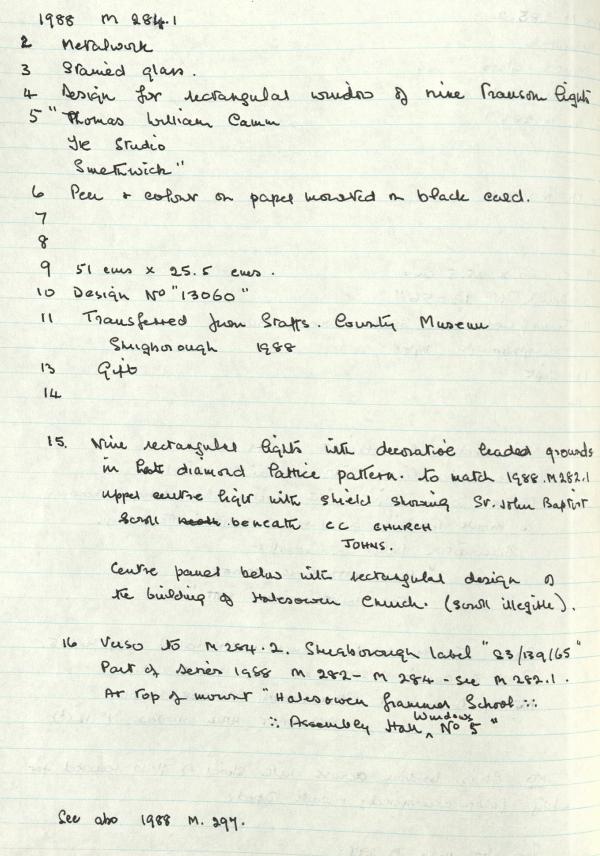 1988 M 284.1
2 Metalwork
3 Stained glass.
4 Design for rectangular window of nine Transom lights
5 "Thomas William Camm
The Studio
Smethwick"
6 Pen + colour on paper mounted on black card.
7
8
9 51 cms x 25.5 cms.
10 Design No "13060"
11 Transferred from Staffs. County Museum
Shugborough 1988
13 Gift
14
15. Nine rectangular lights with decorative leaded grounds
in diamond lattice pattern. to match 1988.M282.1
upper centre light with shield showing St. John Baptist
Scroll beneath CC CHURCH
JOHNS.
Centre panel below with rectangular design of
the building of Halesowen Church. (scroll illegible).
16 Verso to M 284.2. Shugborough label "S3/139/65"
Part of series 1988 M 282 - M 284 - see M 282.1.
At top of mount "Halesowen Grammar School ∴
∴ Assembly Hall Windows No 5"
See also 1988 M. 297.